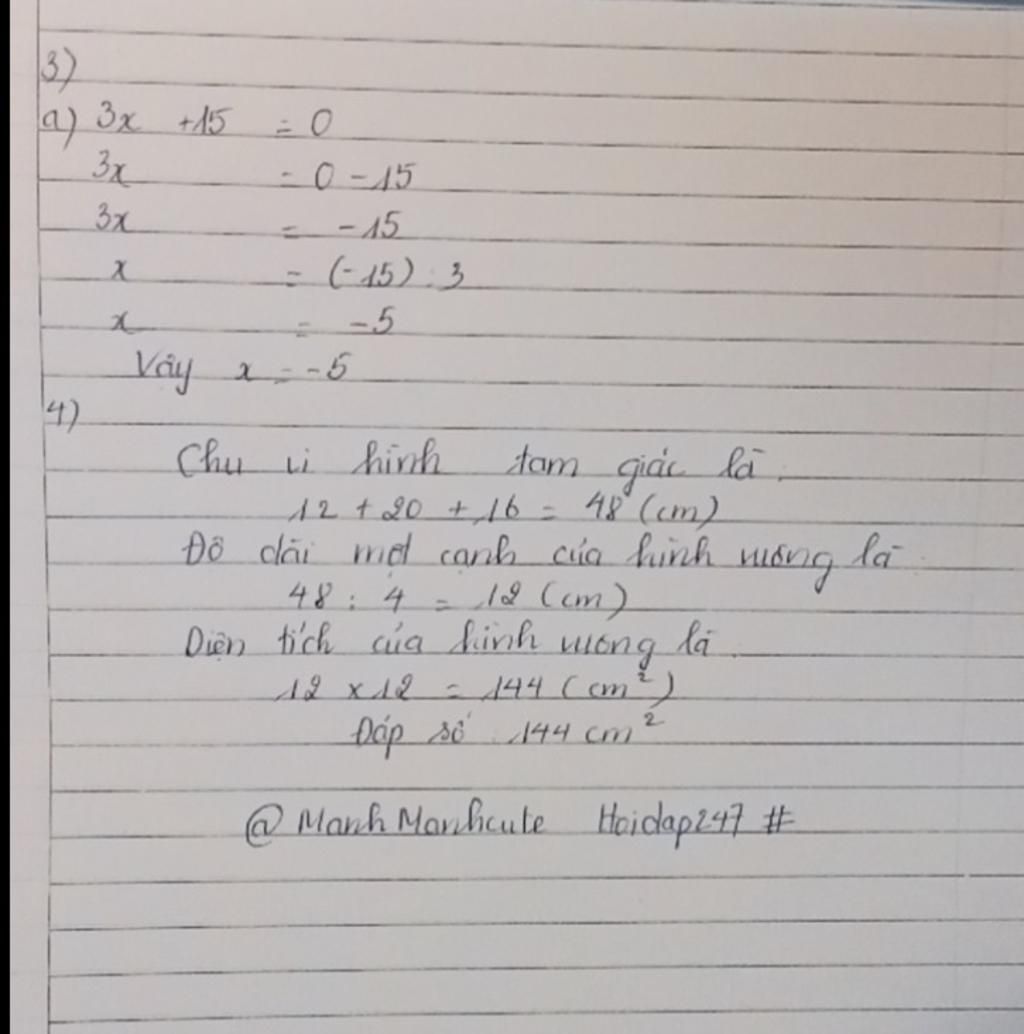 3)
a) 3x + 15 = 0
3x = 0 - 15
3x = -15
x = (-15) : 3
x = -5
Vậy x = -5
4)
Chu vi hình tam giác là :
12 + 20 + 16 = 48 (cm)
Độ dài một cạnh của hình vuông là :
48 : 4 = 12 (cm)
Diện tích của hình vuông là :
12 x 12 = 144 (cm²)
Đáp số : 144 cm²
@ManhManhcute Hoidap247 #